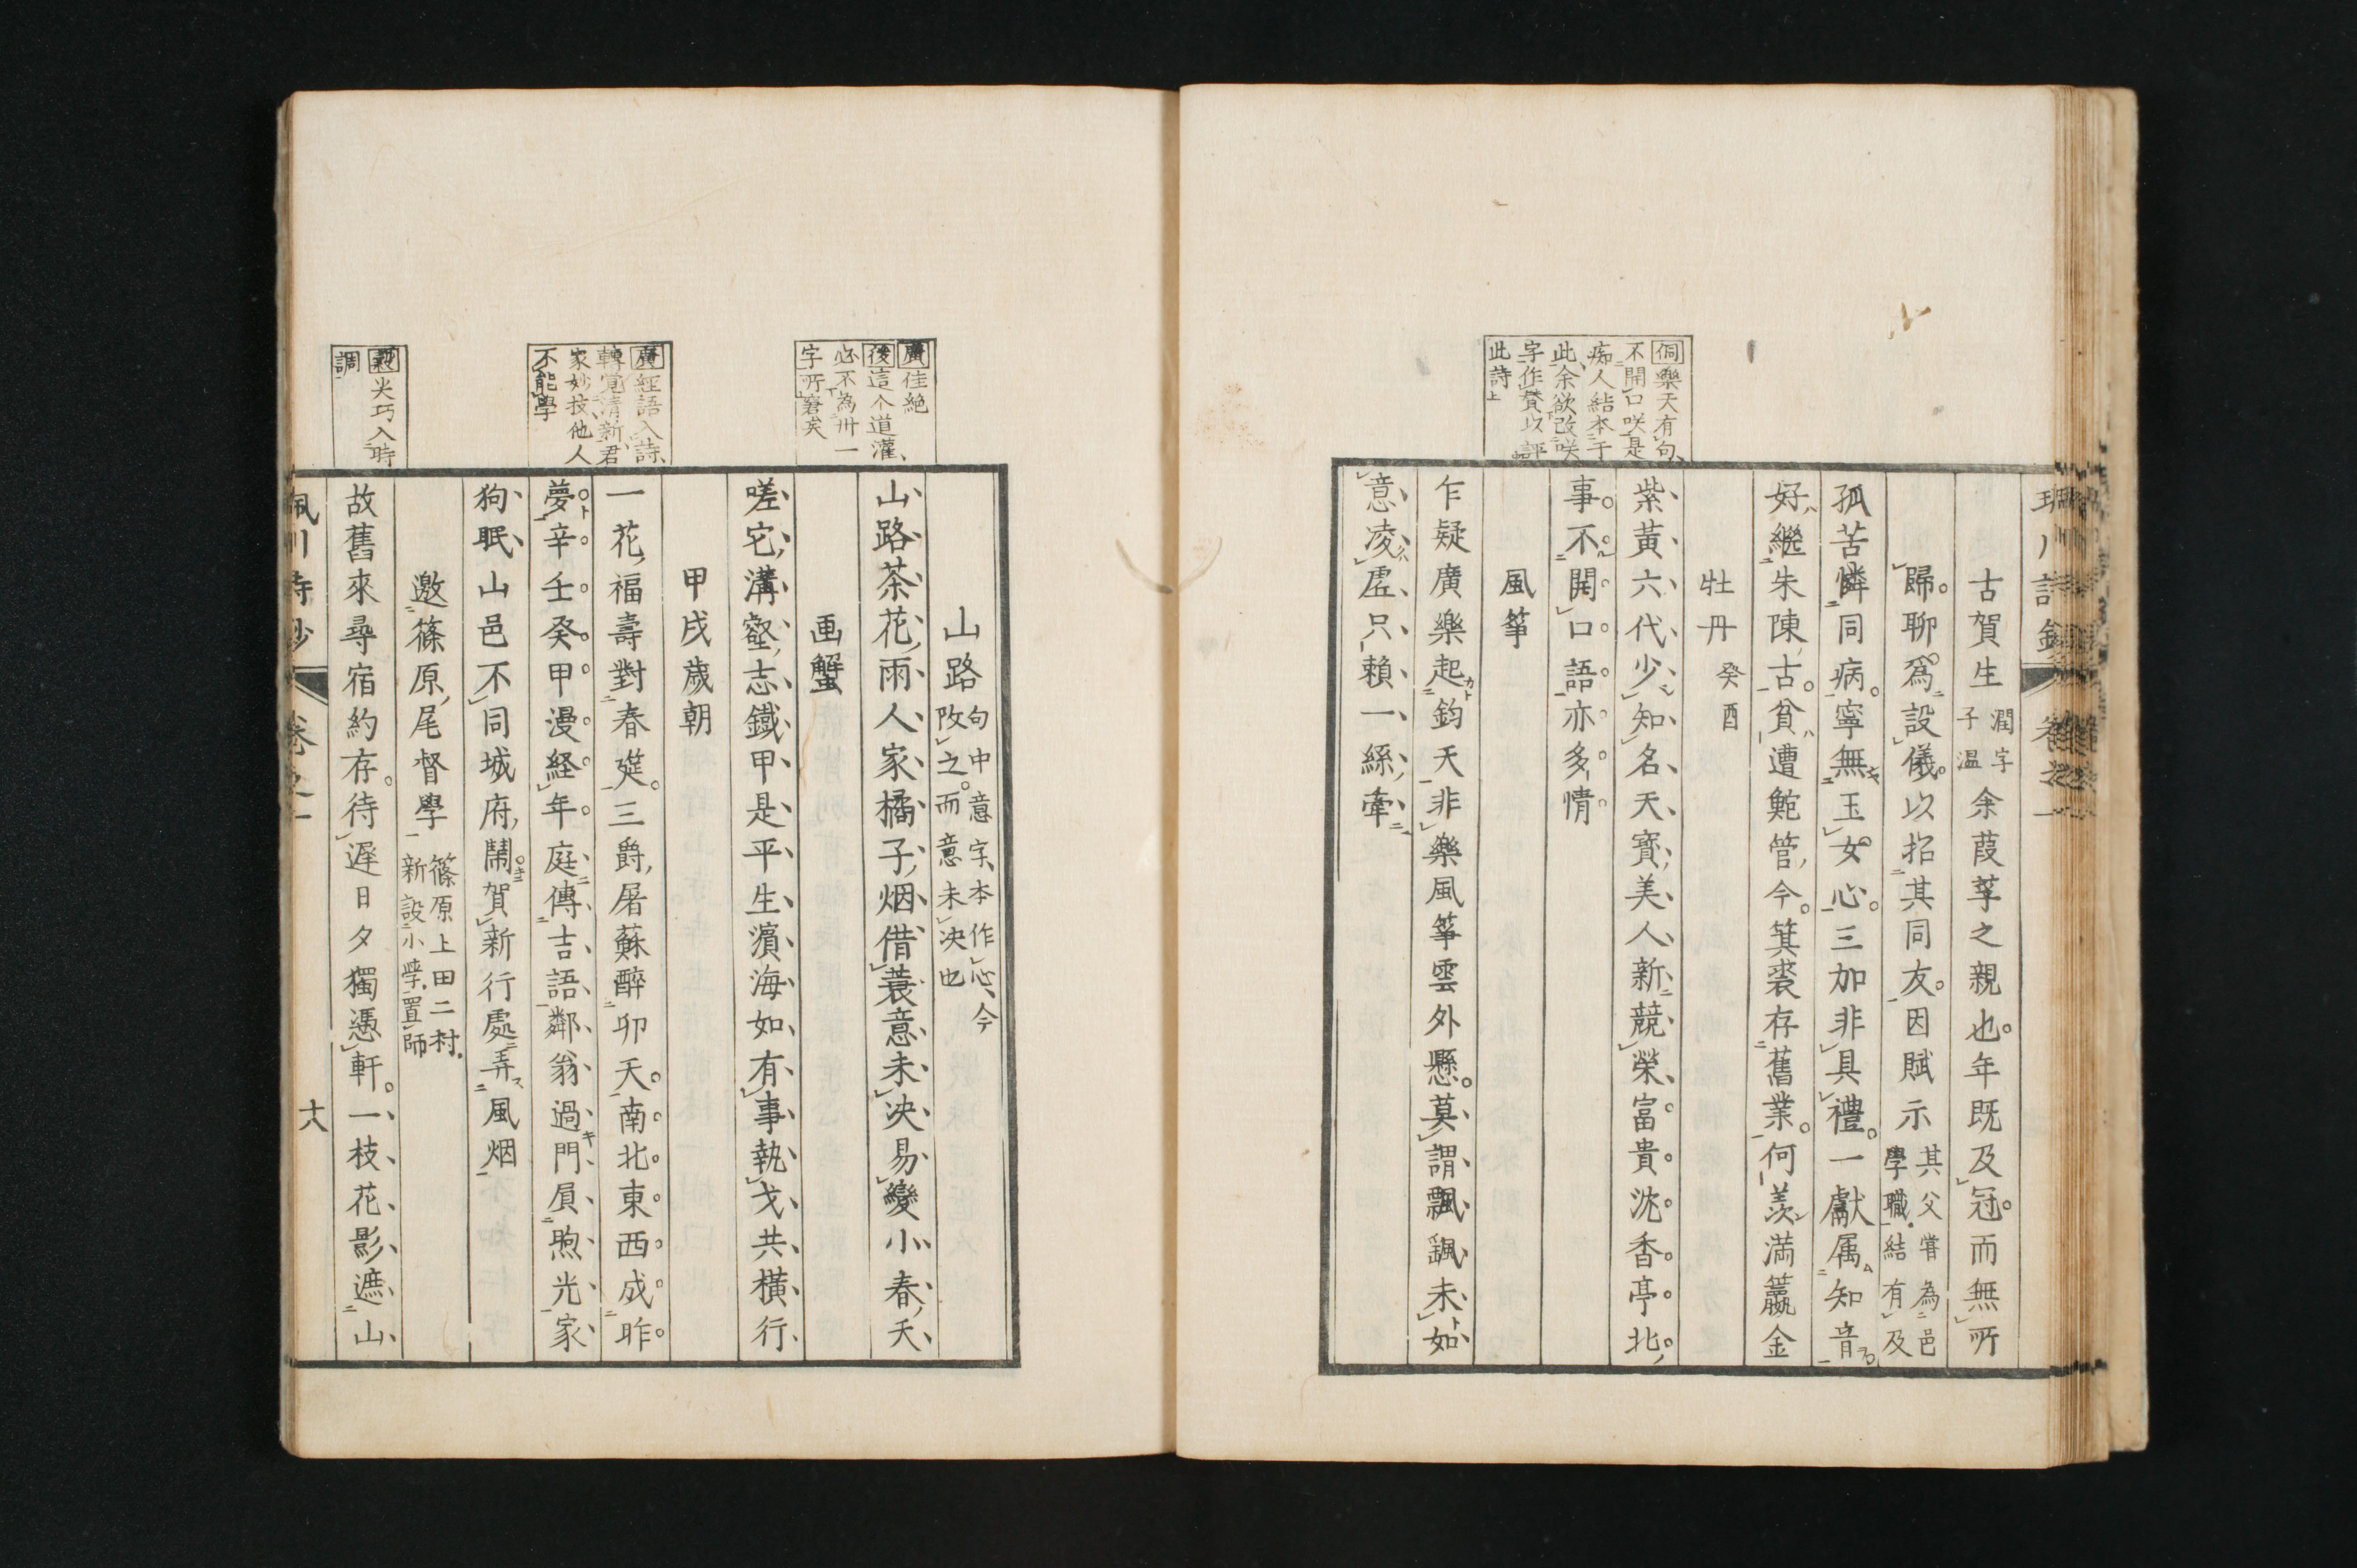 侗樂天有句、
不開口咲是
痴人結本于
此余欲改咲
字作賛以評
此詩上
古賀生 潤字子温 余葭莩之親也。年既及冠。而無所
歸。聊為設儀。以招其同友。因賦示 其父嘗為邑學職。結有及
孤苦憐同病。寧無玉女心。三加非具禮。一獻属知音
好繼朱陳、古。貧遭鮑管、今。箕裘存舊業。何羨満籯金
牡丹 癸酉
紫黄六代少知名天寳、美人新競榮富貴沈香亭北、
事不開口語亦多情
風筝
乍疑廣樂起鈞天非樂風筝雲外懸。莫謂飄颻未如
意凌虚只賴一絲牽
廣佳絶
後這个道灌、
必不為卅一
字所窘矣
廣經語入詩、
轉覺清新、君
家妙技他人
不能學
尖巧入時
調
山路 句中意字、本作心、今改之。而意未决也
山路茶花、雨人家橘子、烟借蓑意未决易變小春、天
画蟹
嗟宅、溝壑、志鐵甲是平生濵海如有事執戈共橫行
甲戌歳朝
一花、福壽對春筵。三爵、屠蘇醉卯天。南北東西成昨
夢辛壬癸甲漫経年。庭傳吉語鄰翁過門負煦光家
狗眠山邑不同城府、鬧賀新行處弄風烟
邀篠原、尾督學 篠原上田二村。新設小學。置師
故舊來尋宿約存。待遅日夕獨憑軒。一枝花影遮山
十八